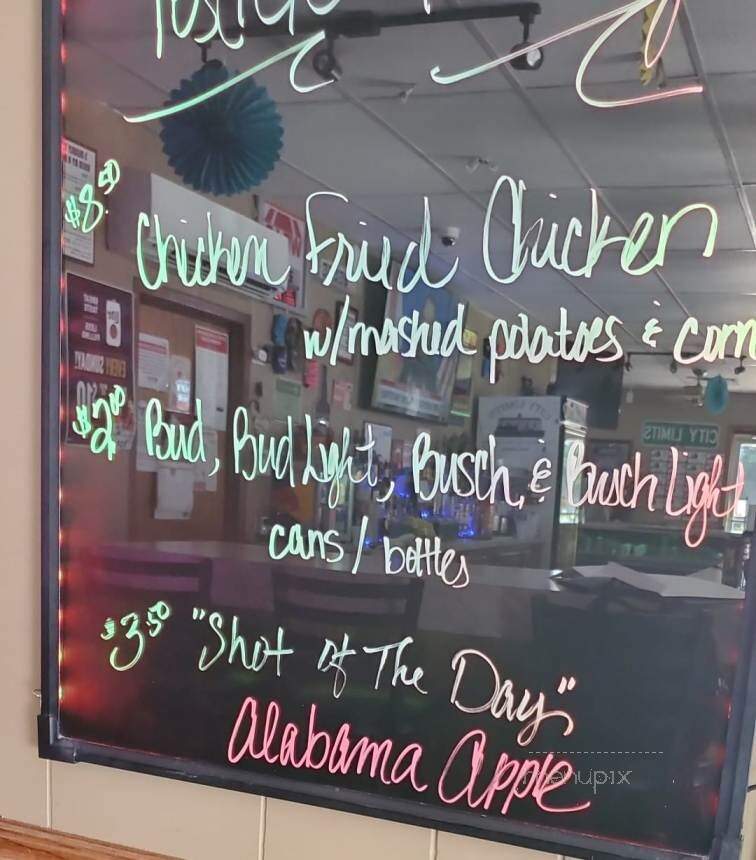 $8.50 Chicken Fried Chicken
w/mashed potatoes & corn
$2.00 Bud, Bud Light, Busch, & Busch Light
cans / bottles
$3.50 "Shot of The Day"
Alabama Apple
CITY LIMITS
menupix